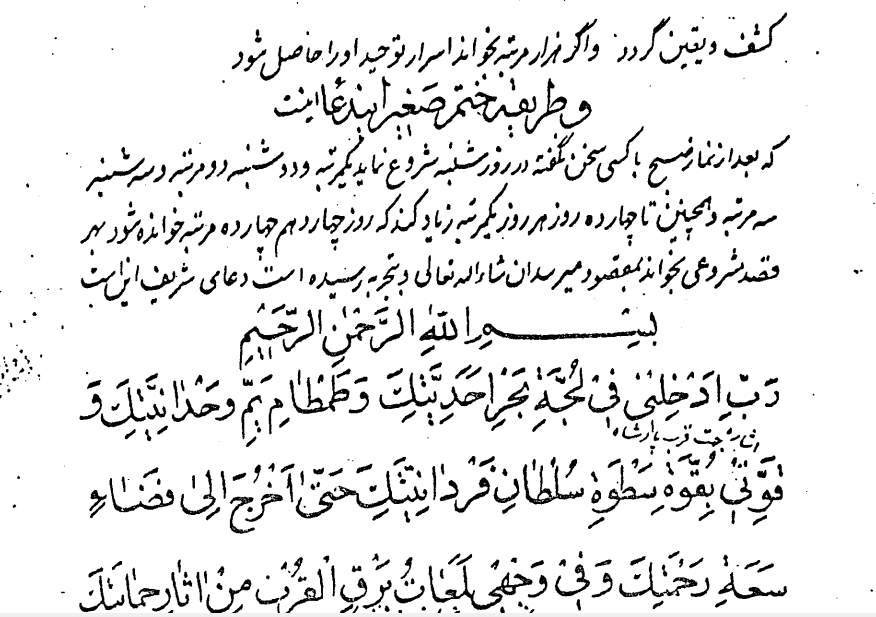 کشف و یقین گردد و اگر هزار مرتبه بخواند اسرار توحید او را حاصل شود
و طریقه ختم صغیر ایندعا اینست
که بعد از نماز صبح با کسی سخن نگفته در روز شنبه شروع نماید یکمرتبه و دوشنبه دو مرتبه و سه شنبه
سه مرتبه و همچنین تا چهارده روز هر روز یکمرتبه زیاد کند که روز چهاردهم چهارده مرتبه خوانده شود بهر
قصد مشروعی بخواند بمقصود میرسد ان شاء اله تعالی و بتجربه رسیده است دعای شریف این است
بِسْمِ اللّٰهِ الرَّحْمٰنِ الرَّحِیْمِ
رَبِّ اَدْخِلْنٖی فِیْ لُجَّةِ بَحْرِ اَحَدِیَّتِكَ وَ طَمْطَامِ یَمِّ وَحْدَانِیَّتِكَ وَ
قَوِّنٖی بِقُوَّةِ سَطْوَةِ سُلْطَانِ فَرْدَانِیَّتِكَ حَتّٰی اَخْرُجَ اِلیٰ فَضَاءِ
سَعَةِ رَحْمَتِكَ وَ فِیْ وَجْهٖی لَمَعَاتُ بَرْقِ الْقُرْبِ مِنْ اٰثَارِ حِمَایَتِكَ